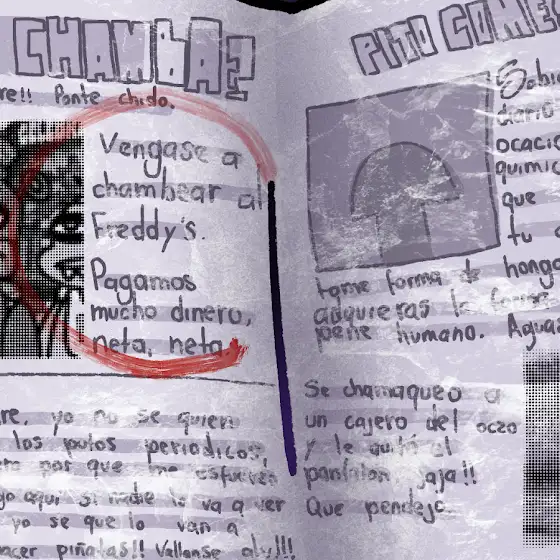 CHAMBA?
re!! Ponte chido.
Vengase a
chambear al
Freddy's.
Pagamos
mucho dinero,
neta, neta.
re, yo no se quien
los putos periodicos,
por que me esfuerzo
aqui, si nadie lo va a ver
yo se que lo van a
hacer piñatas!! Vallanse alv!!!
PITO COME
ocacio
quimic
que
tu
tome forma de hongo
adquieras la forma
pene humano. Aguas
Se chamaqueo a
un cajero del oczo
y le quitó el
pantalon, jaja!!
Que pendejo.